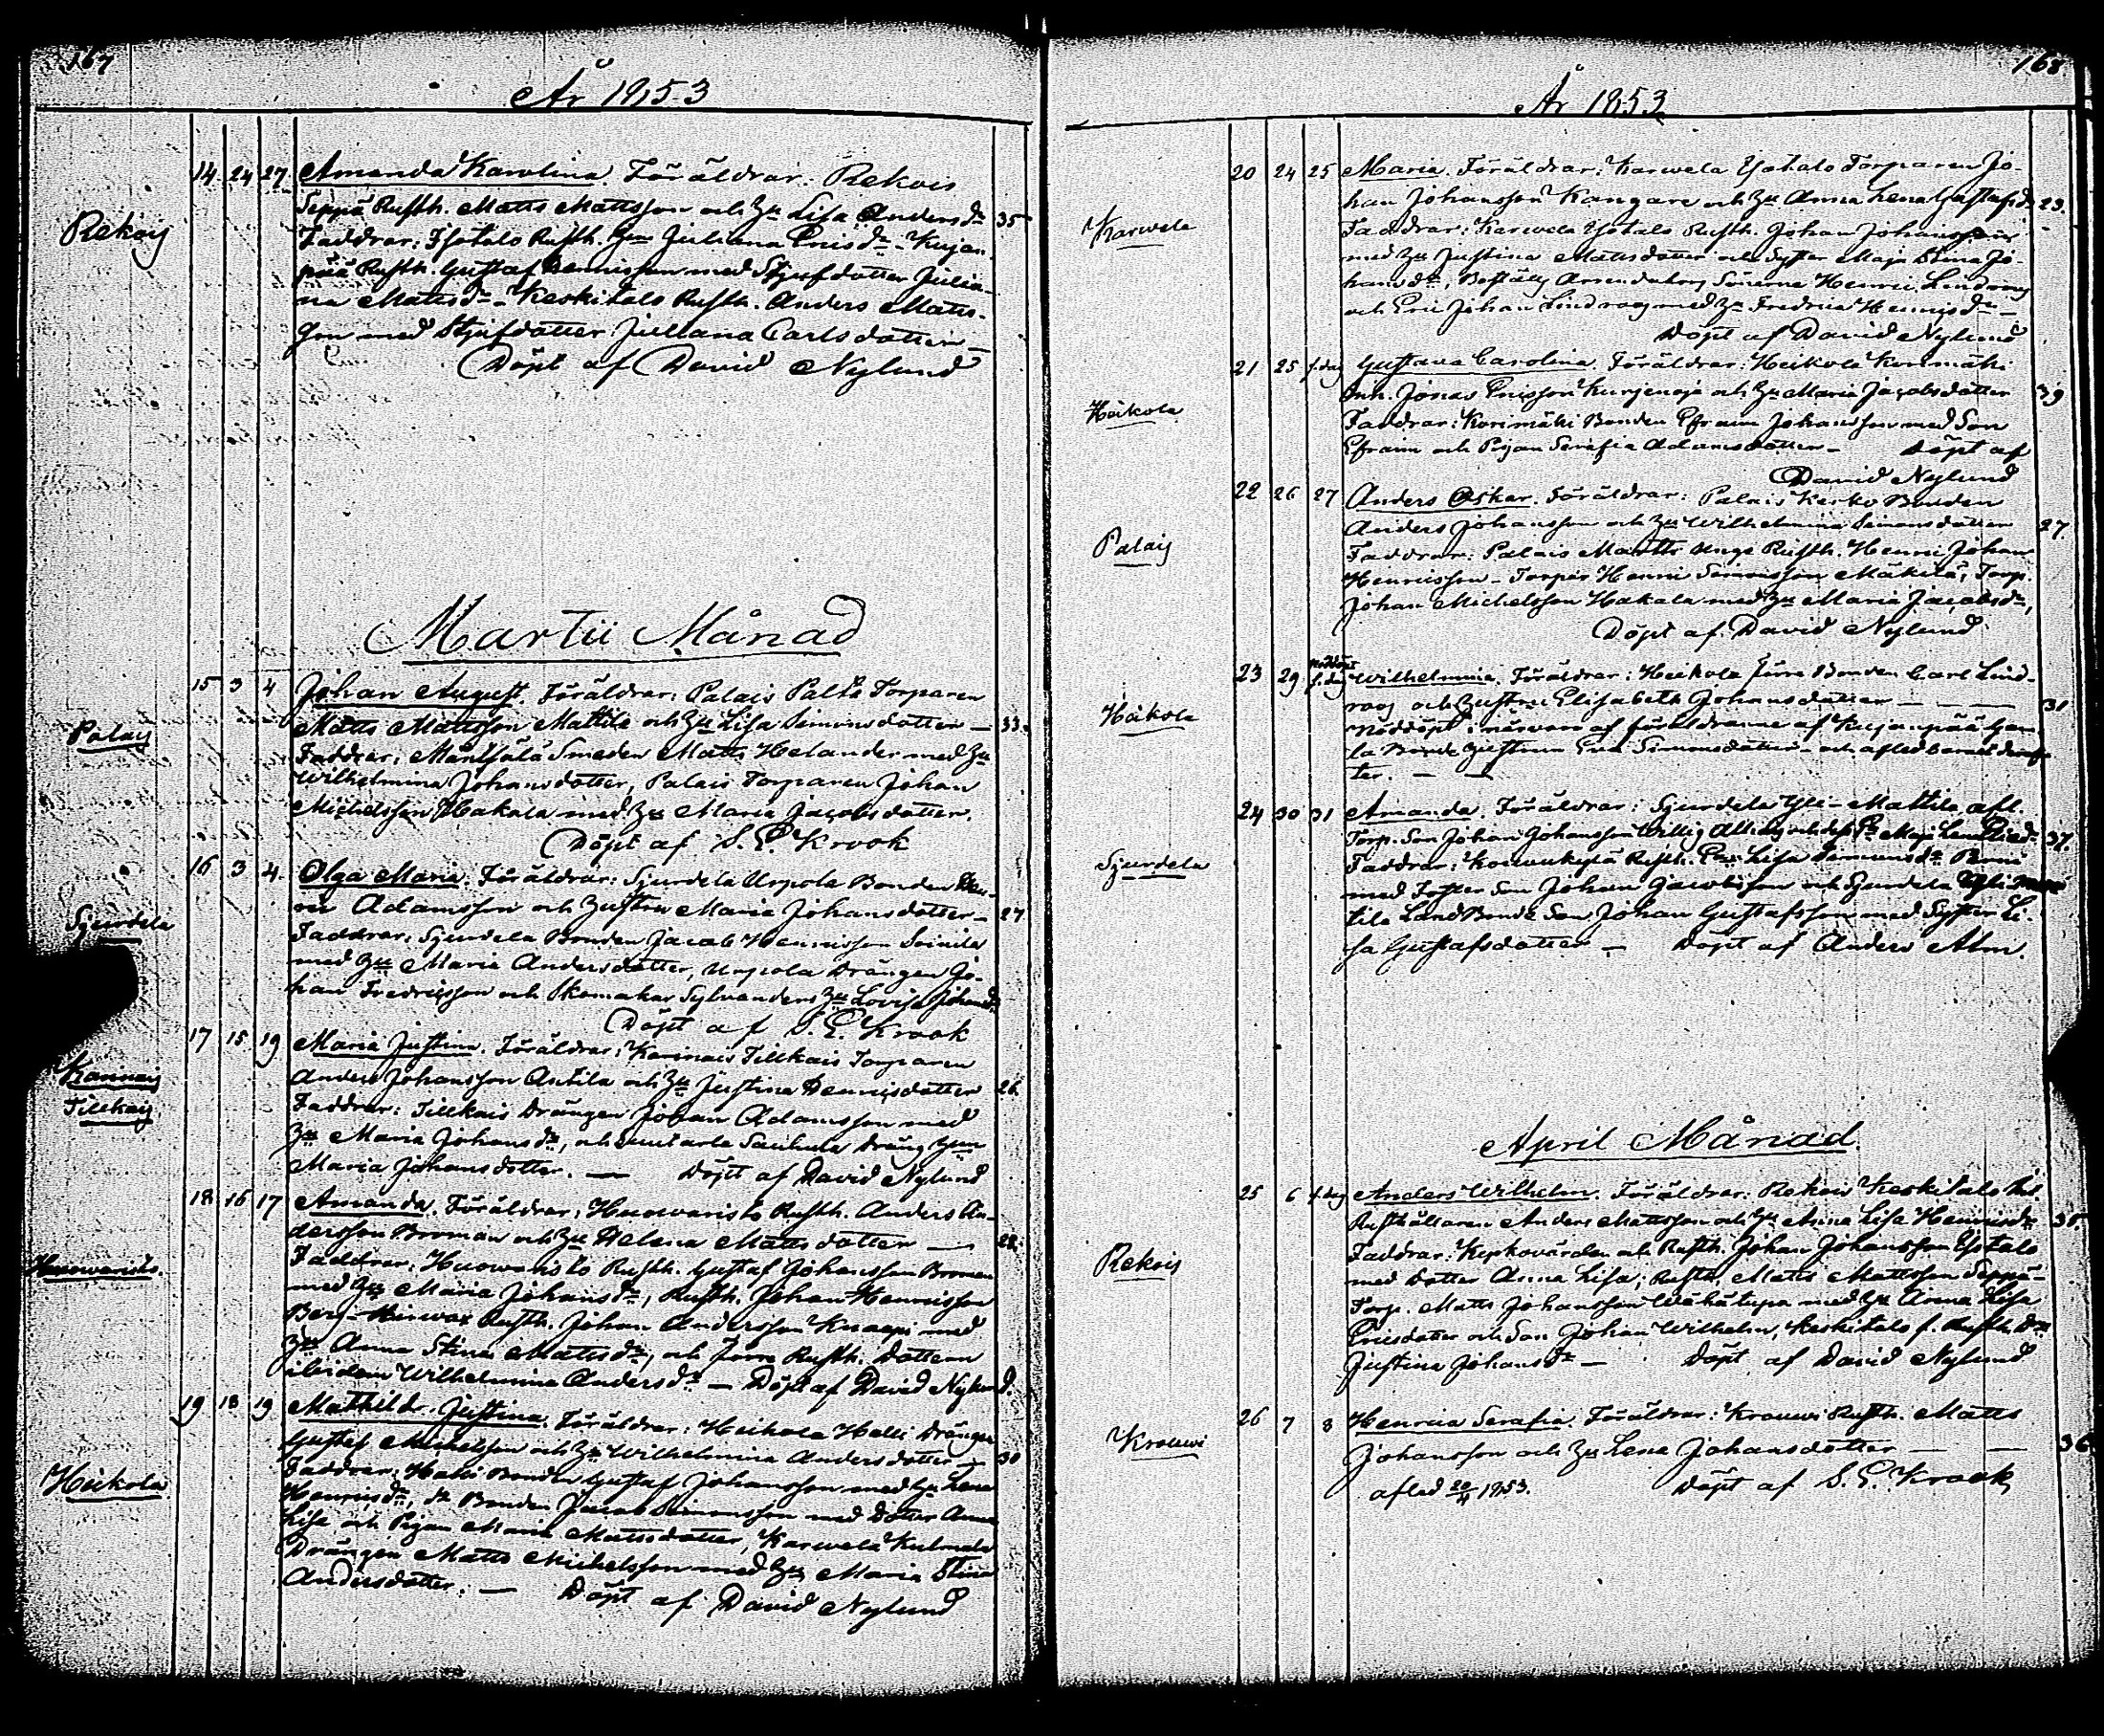 167
År 1853
Rekois
14 24 27 Amanda Karolina. Föräldrar: Rekois
Seppä Rusth. Matts Mattsson och Hu Lisa Andersdr 35
Faddrar: Isotalo Rusth. Juliana Ericsdr - Kujan
pää Rusth. Gustaf Henricsson med Styfdotter Julia-
na Mattsdr - Keskitalo Rusth. Anders Matts-
son med Styfdotter Juliana Carlsdotter
Döpt af David Nylund
Martii Månad
Palais
15 3 4 Johan August. Föräldrar: Palais Torparen
Matts Mattsson Mattila och Hu Lisa Simonsdotter — 33.
Faddrar: Smeden Matts Helander med Hu
Wilhelmina Johansdotter, Palais Torparen Johan
Michelsson Hakala med Hu Maria Jacobsdotter.
Döpt af S. E. Krook
Sjurdela
16 3 4. Olga Maria. Föräldrar: Sjurdela Urpola Bonden Hen-
ric Adamsson och Hustru Maria Johansdotter — 27
Faddrar: Sjurdela Bonden Jacob Henricsson Soinila
med Hu Maria Andersdotter, Urpola Drängen Jo-
han Fredricsson och Skomakar Sylvanders Hu Lovisa Johansdr
Döpt af S. E. Krook
Karinais
Tillkais
17 15 19 Maria Justina. Föräldrar: Karinais Tillkais Torparen
Anders Johansson Antila och Hu Justina Henricsdotter 26
Faddrar: Tillkais Drängen Johan Adamsson med
Hu Maria Johansdr, och Dräng
Maria Johansdotter. — Döpt af David Nylund
Huowaristo.
18 16 17 Amanda. Föräldrar: Huowaristo Rusth. Anders An-
dersson Broman och Hu Helena Mattsdotter — 28
Faddrar: Huowaristo Rusth. Gustaf Johansson Broman
med Hu Maria Johansdr, Rusth. Johan Henricsson
Berg - Rusth. Johan Andersson Knaapi med
Hu Anna Stina Mattsdr, och Jorra Rusth. Dottern
ibidem Wilhelmina Andersdr — Döpt af David Nylund.
Heikola
19 18 19 Mathilda Justina. Föräldrar: Heikola Halli Drängen
Gustaf Michelsson och Hu Wilhelmina Andersdotter — 30
Faddrar: Halli Bonden Gustaf Johansson med Hu Lena
Henricsdr, dr Bonden Jacob Simonsson med Dotter Anna
Lisa och Pigan Maria Mattsdotter, Karwela Kulmala
Drängen Matts Michelsson med Hu Maria Stina
Andersdotter. — Döpt af David Nylund
168
År 1853
Karwela
20 24 25 Maria. Föräldrar: Karwela Yötalo Torparen Jo-
han Johansson Kangare och Hu Anna Lena Gustafsdr 29.
Faddrar: Karwela Yötalo Rusth. Johan Johansson
med Hu Justina Mattsdotter och Syster Maja Stina Jo-
hansdr, Boställs Arrendators Sönerne Henric Lindroos
och Eric Johan Lindroos med Hu Fredrica Henricsdr —
Döpt af David Nylund
Heikola
21 25 s. dag Gustava Carolina. Föräldrar: Heikola Korimäki
Inh. Jonas Ericsson Kurjenoja och Hu Maria Jacobsdotter 39
Faddrar: Korimäki Bonden Efraim Johansson med Son
Efraim och Pigan Serafia Adamsdotter — Döpt af
David Nylund
Palais
22 26 27 Anders Oskar. Föräldrar: Palais Kerko Bonden
Anders Johansson och Hu Wilhelmina Simonsdotter 27.
Faddrar: Palais Martti Unge Rusth. Henric Johan
Henricsson - Torpar Henric Simonsson Mäkilä, Torp.
Johan Michelsson Hakala med Hu Maria Jacobsdr,
Döpt af David Nylund
Heikola
23 29 nöddöpt s. dag Wilhelmina. Föräldrar: Heikola Jorra Bonden Carl Lind-
roos och Hustru Elisabeth Johansdotter — — 31
Nöddöpt i närvaro af föräldrarne af Kujanpää gam-
la Bonde Hustrun Eva Simonsdotter - och afled barnet deref-
ter. — —
Sjurdela
24 30 31 Amanda. Föräldrar: Sjurdela Yli-Mattila afl.
Torp. Son Johan Johansson Willig och dess Maja Lena 37.
Faddrar: Koiwukylä Rusth. Lisa Simonsdr
med Son Johan Jacobsson och Sjurdela Yli Mat
tila LandBonde Son Johan Gustafsson med Syster Li-
sa Gustafsdotter — Döpt af Anders Alm.
April Månad.
Rekois
25 6 s. dag Anders Wilhelm. Föräldrar: Rekois Keskitalo
Rusthållaren Anders Mattsson och Hu Anna Lisa Henricsdr 35
Faddrar: Kyrkovärden och Rusth. Johan Johansson Yötalo
med Dotter Anna Lisa; Rusth. Matts Mattsson Seppä-
Torp. Matts Johansson Wähätupa med Hu Anna Lisa
Ericsdotter och Son Johan Wilhelm, Keskitalo f. Rusth. Dr
Justina Johansdr — Döpt af David Nylund
Krouwi
26 7 8 Henrica Serafia. Föräldrar: Krouwi Rusth. Matts
Johansson och Hu Lena Johansdotter — — 36
afled 20/4 1853. Döpt af S. E. Krook